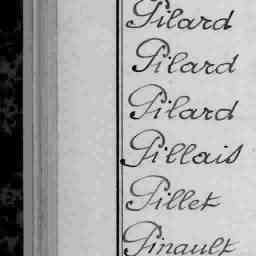 Pilard
Pilard
Pilard
Pillais
Pillet
Pinault